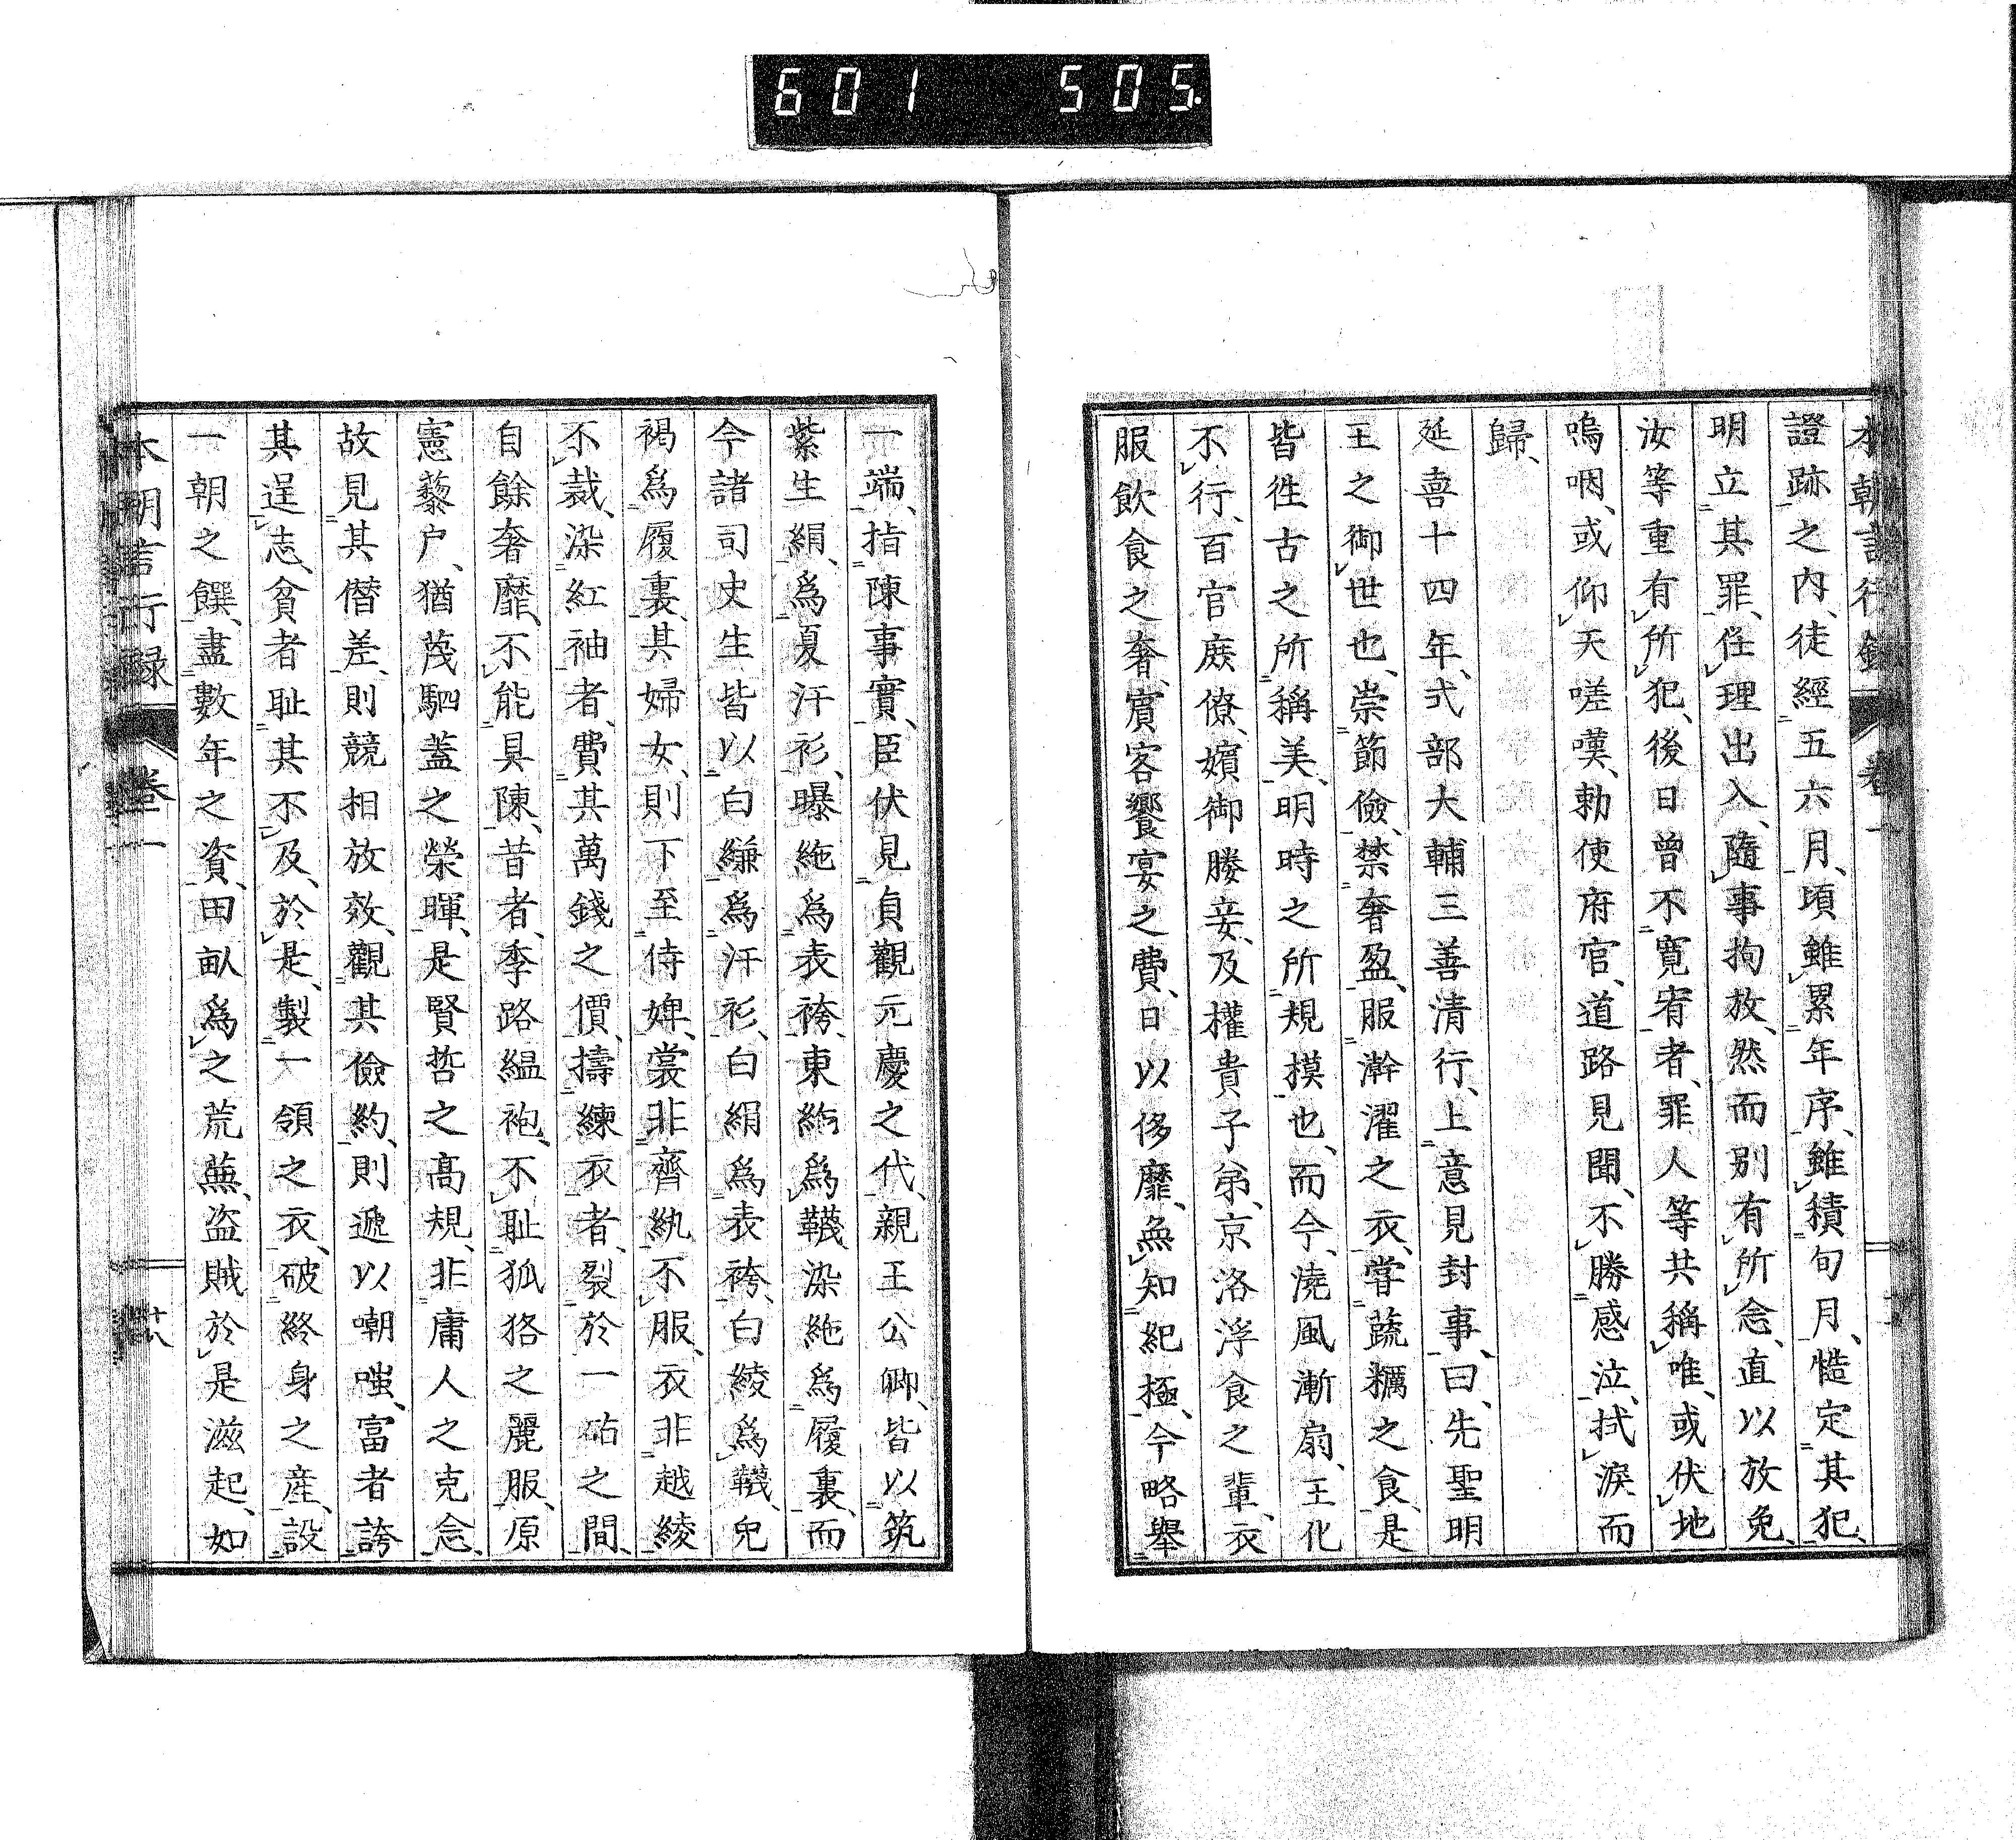 601 505.
本朝言行録 卷一
證跡之内、徒經五六月、頃雖累年序、雖積旬月、慥定其犯、
明立其罪、任理出入、隨事拘放、然而别有所念、直以放免、
汝等重有所犯、後日曾不寛宥者、罪人等共稱唯、或伏地
嗚咽、或仰天嗟嘆、勅使府官、道路見聞、不勝感泣、拭淚而
歸、
延喜十四年、式部大輔三善清行、上意見封事、曰、先聖明
王之御世也、崇節儉、禁奢盈、服澣濯之衣、嘗蔬糲之食、是
皆徃古之所稱美、明時之所規摸也、而今、澆風漸扇、王化
不行、百官庶僚、嬪御媵妾、及權貴子弟、京洛浮食之輩、衣
服飲食之奢、賓客饗宴之費、日以侈靡、無知紀極、今略舉
一端、指陳事實、臣伏見貞觀元慶之代、親王公卿、皆以筑
紫生絹、爲夏汗衫、曝絁爲表袴、東絁爲韈、染絁爲履裏、而
今諸司史生、皆以白縑爲汗衫、白絹爲表袴、白綾爲韈、兜
褐爲履裏、其婦女、則下至侍婢、裳非齊紈不服、衣非越綾
不裁、染紅袖者、費其萬錢之價、擣練衣者、裂於一砧之間、
自餘奢靡、不能具陳、昔者、季路緼袍、不耻狐狢之麗服、原
憲藜戶、猶蔑駟蓋之榮暉、是賢哲之高規、非庸人之克念、
故見其僭差、則競相放效、觀其儉約、則遞以嘲嗤、富者誇
其逞志、貧者耻其不及、於是、製一領之衣、破終身之産、設
一朝之饌、盡數年之資、田畝爲之荒蕪、盗賊於是滋起、如
本朝言行録 卷一 十八